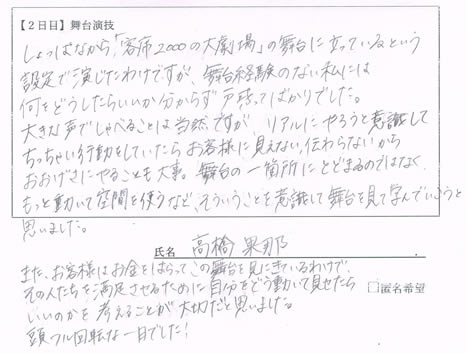 【２日目】舞台演技
しょっぱなから「客席2000の大劇場」の舞台に立っているという
設定で演じたわけですが、舞台経験のない私には
何をどうしたらいいか分からず戸惑ってばかりでした。
大きな声でしゃべることは当然ですが、リアルにやろうと意識して
ちっちゃい行動をしていたらお客様に見えない、伝わらないから
おおげさにやることも大事。舞台の一箇所にとどまるのではなく
もっと動いて空間を使うなど、そういうことを意識して舞台を見て学んでいこうと
思いました。
氏名 高橋 果那
また、お客様はお金をはらってこの舞台を見にきているわけで、
その人たちを満足させるために自分をどう動いて見せたら
□匿名希望
いいのかを考えることが大切だと思いました。
頭フル回転な一日でした!